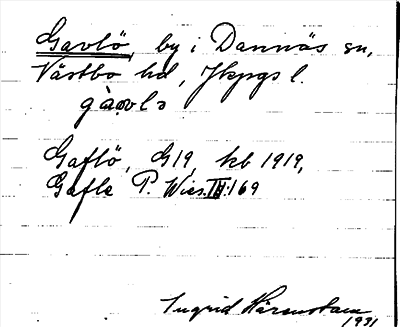 Gavlö, by i Dannäs sn,
Västbo hd, Jkpgs l.
Gaflö, G19, kb 1919,
Gafle P. Wies. III:169
Ingrid
1931